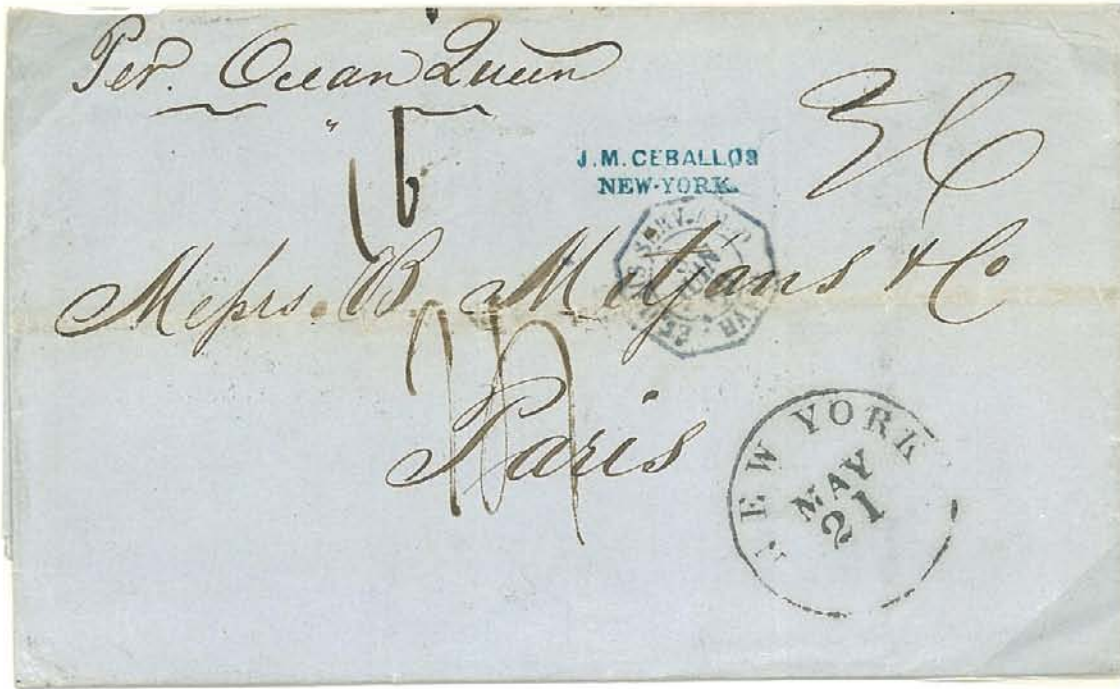 Per. Ocean Queen
16
J. M. CEBALLOS
NEW-YORK.
Messrs. B. Mitjans & Co
Paris
NEW YORK
MAY
21